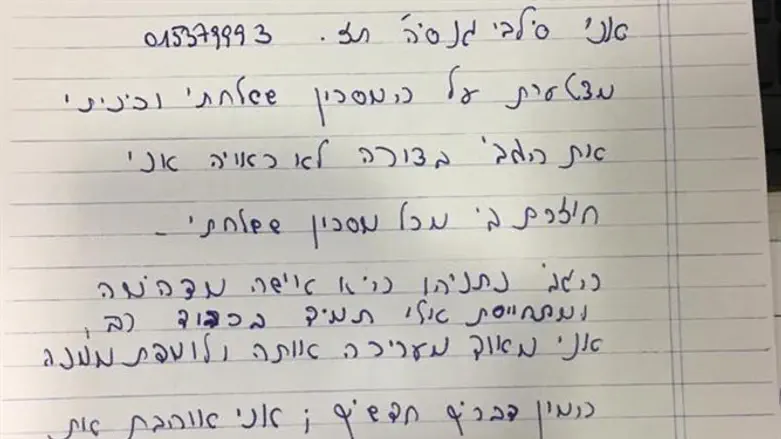 אני סילבי גנסיה תז. 015379993
מצטערת על המסרון ששלחתי וכיניתי
את הגב' בצורה לא ראויה אני
חוזרת בי מכל מסרון ששלחתי -
הגב' נתניהו היא אישה מדהימה
ומתחייסת אלי תמיד בכבוד רב,
אני מאוד מעריכה אותה ולומדת ממנה
המון דברים חדשים ; אני אוהבת את